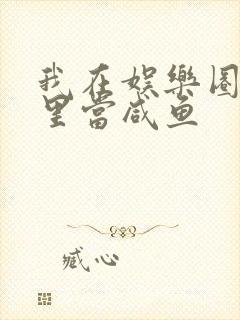 我在娱樂圈
里當咸鱼
臧心